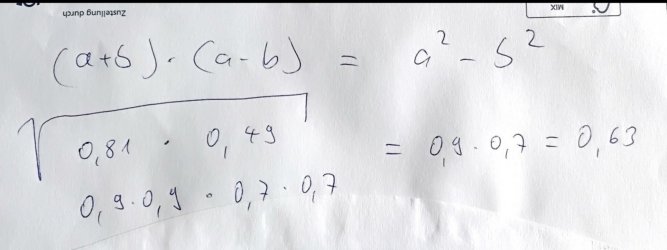 Zustellung durch
MIX
(a+b) · (a-b) = a² - b²
√0,81 · 0,49 = 0,9 · 0,7 = 0,63
0,9 · 0,9 · 0,7 · 0,7